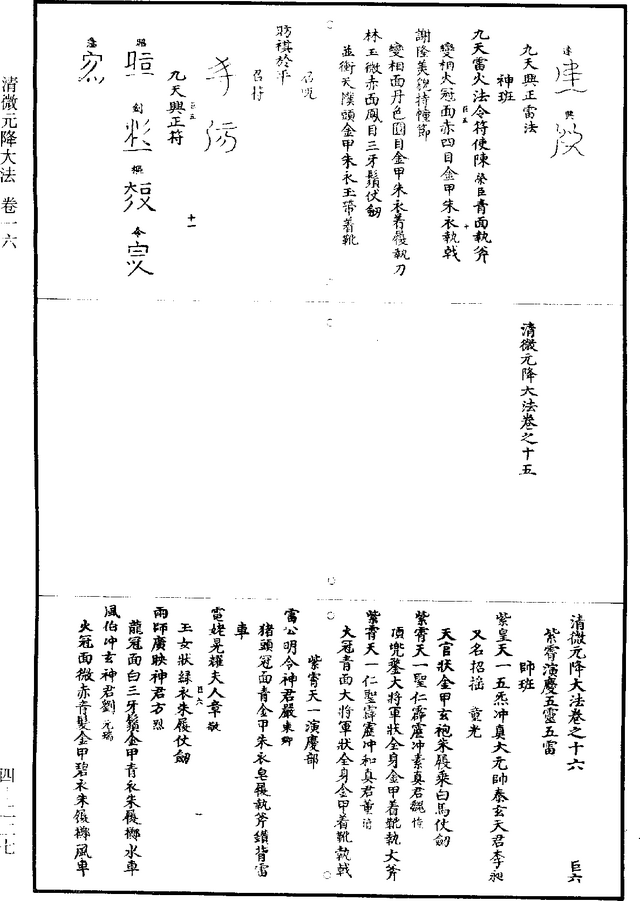 清微元降大法 卷一六
九天興正雷法
神班
九天雷火法令符使陳榮臣青面執斧
變相火冠面赤四目金甲朱衣執戟
謝隆美貌持幢節
變相面丹色圓目金甲朱衣著履執刀
林玉微赤面鳳目三牙鬚仗劒
並衝天幞頭金甲朱衣玉帶着靴
召呪
召符
九天興正符
十一
清微元降大法卷之十五
清微元降大法卷之十六
巨六
紫霄演慶五靈五雷
師班
紫皇天一五炁冲真大元帥泰玄天君李昶
又名招搖 童光
天官狀金甲玄袍朱履乘白馬仗劒
紫霄天一聖仁霹靂冲素真君魏偉
頂兜鍪大將軍狀全身金甲着靴執大斧
紫霄天一仁聖霹靂冲和真君董
大冠青面大將軍狀全身金甲着靴執戟
紫霄天一演慶部
雷公明令神君嚴東卿
猪頭冠面青金甲朱衣皂履執斧鑽背雷
車
電姥晃耀夫人章敬
玉女狀綠衣朱履仗劒
雨師廣映神君方烈
龍冠面白三牙鬚金甲青衣朱履擲水車
風伯冲玄神君劉元瑞
火冠面微赤青髮金甲碧衣朱履擲風車